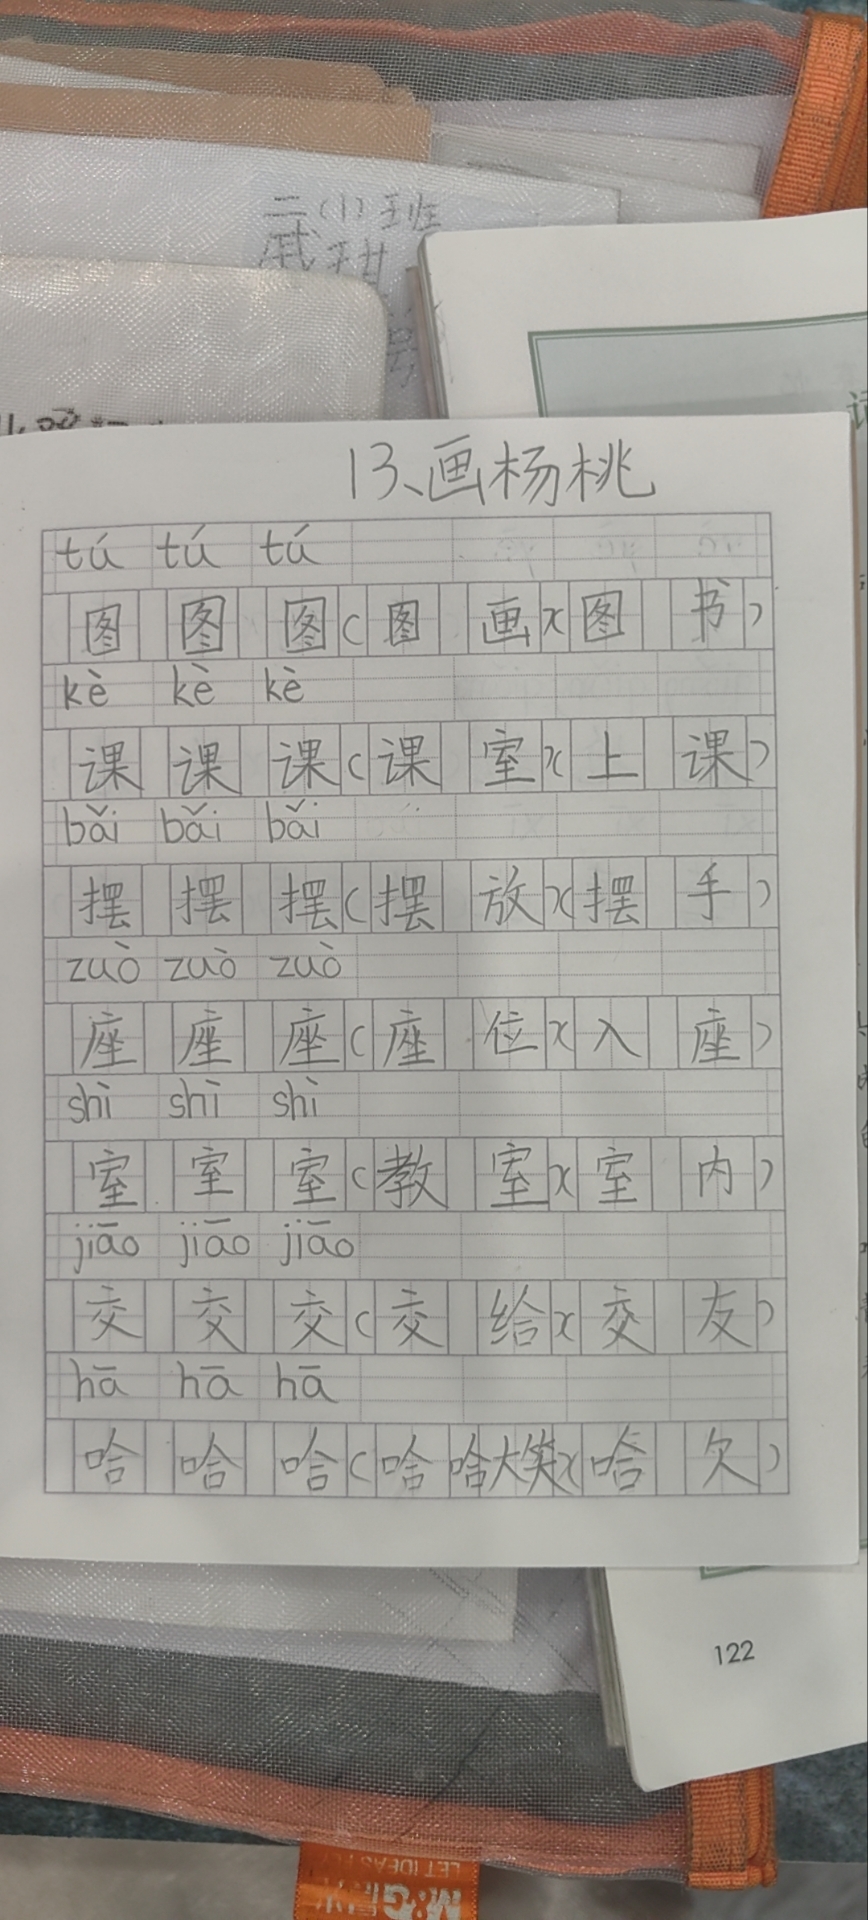 二(1)班
戚甜
号
13、画杨桃
tú tú tú
图 图 图(图 画)(图 书)
kè kè kè
课 课 课(课 室)(上 课)
bǎi bǎi bǎi
摆 摆 摆(摆 放)(摆 手)
zuò zuò zuò
座 座 座(座 位)(入 座)
shì shì shì
室 室 室(教 室)(室 内)
jiāo jiāo jiāo
交 交 交(交 给)(交 友)
hā hā hā
哈 哈 哈(哈 哈大笑)(哈 欠)
122
M&G晨光
LET IDEAS